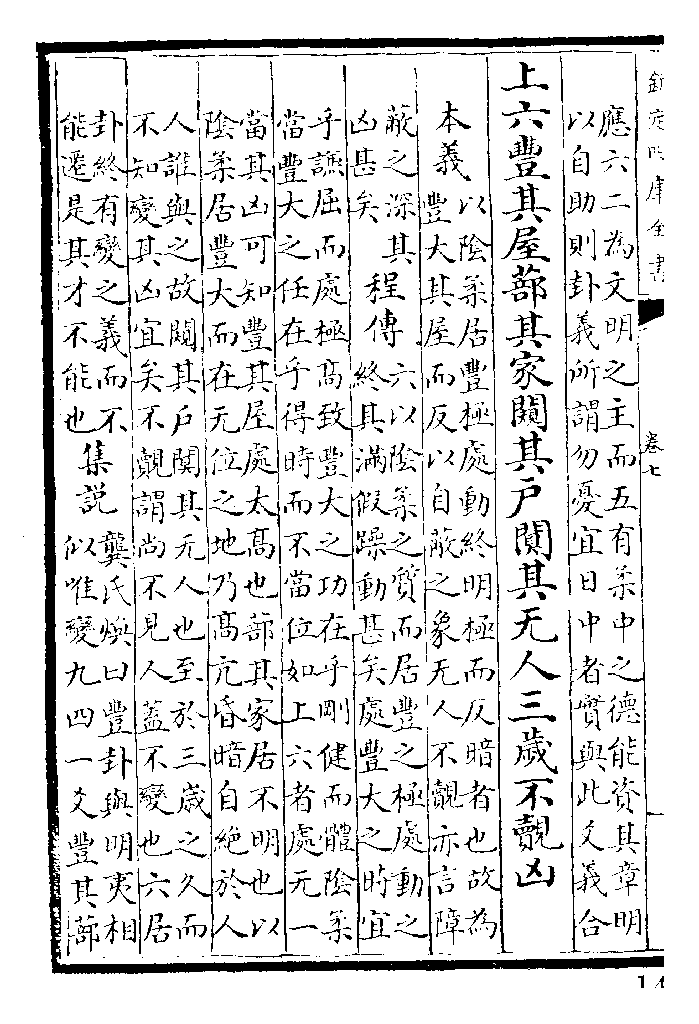 欽定四庫全書
卷七
應六二為文明之主而五有柔中之德能資其章明
以自助則卦義所謂勿憂宜日中者實與此爻義合
上六豐其屋蔀其家闚其户闃其无人三歲不覿凶
本義
以陰柔居豐極處動終明極而反暗者也故為
豐大其屋而反以自蔽之象无人不覿亦言障
蔽之深其
凶甚矣
程傳
六以陰柔之質而居豐之極處動之
終其滿假躁動甚矣處豐大之時宜
乎謙屈而處極髙致豐大之功在乎剛健而體陰柔
當豐大之任在乎得時而不當位如上六者處无一
當其凶可知豐其屋處太髙也蔀其家居不明也以
陰柔居豐大而在无位之地乃髙亢昏暗自絶於人
人誰與之故闚其戶闃其无人也至於三歲之久而
不知變其凶宜矣不覿謂尚不見人蓋不變也六居
卦終有變之義而不
能遷是其才不能也
集説
龔氏煥曰豐卦與明夷相
似唯變九四一爻豐其蔀